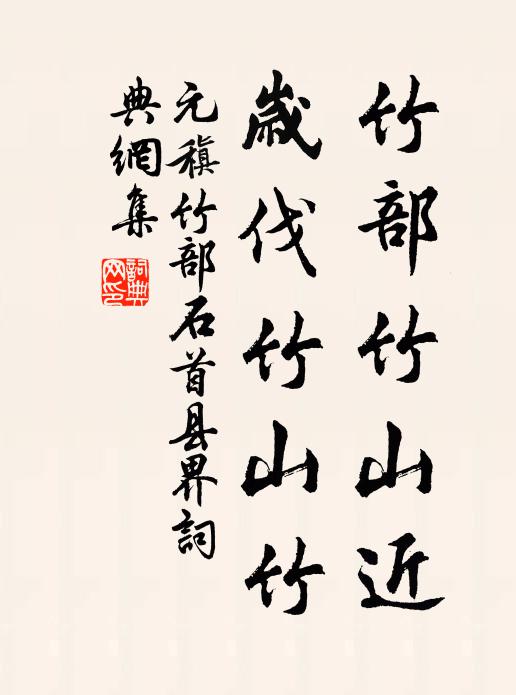 竹部竹山近
歲伐竹山竹
元稹竹部石首县界詞
典網集
詞典
网印